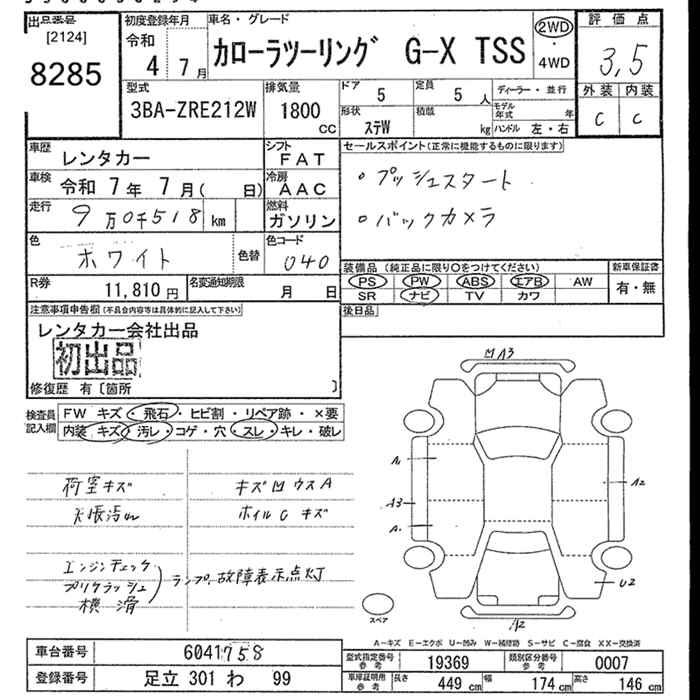 出品番号 初度登録年月 車名・グレード 2WD 評価点
[2124] 令和 カローラツーリング G-X TSS 4WD 3,5
8285 4年 7月
型式 排気量 ドア 5 定員 5人 ディーラー・並行 外装 内装
3BA-ZRE212W 1800cc 形状 ステW 積載 kg モデル年式 年 ハンドル 左・右 C C
車歴 レンタカー シフト FAT セールスポイント(正常に機能するものに限ります)
車検 令和 7年 7月( 日) 冷房 AAC ◦プッシュスタート
走行 9万0千518km 燃料 ガソリン ◦バックカメラ
色 ホワイト 色替 色コード 040
装備品(純正品に限り○をつけてください) 新車保証書
R券 11,810円 名変通知期限 月 日 PS PW ABS エアB AW 有・無
SR ナビ TV カワ
注意事項申告欄(不具合内容等は具体的に記入して下さい) 後日品
レンタカー会社出品
初出品
修復歴 有〔箇所 〕
検査員記入欄 FW キズ・飛石・ヒビ割・リペア跡・×要
内装 キズ・汚レ・コゲ・穴・スレ・キレ・破レ
荷室キズ キズ凹ウスA
天張汚れ ホイルCキズ
エンジンチェック
プリクラッシュ ランプ、故障表示点灯
横滑
A3
A2
A3
U2
A2
スペア
A-キズ E-エクボ U-凹み W-補修跡 S-サビ C-腐食 XX-交換済
車台番号 6041758 型式指定番号 参考 19369 類別区分番号 参考 0007
登録番号 足立 301 わ 99 車庫証明用 参考 長さ 449cm 幅 174cm 高さ 146cm